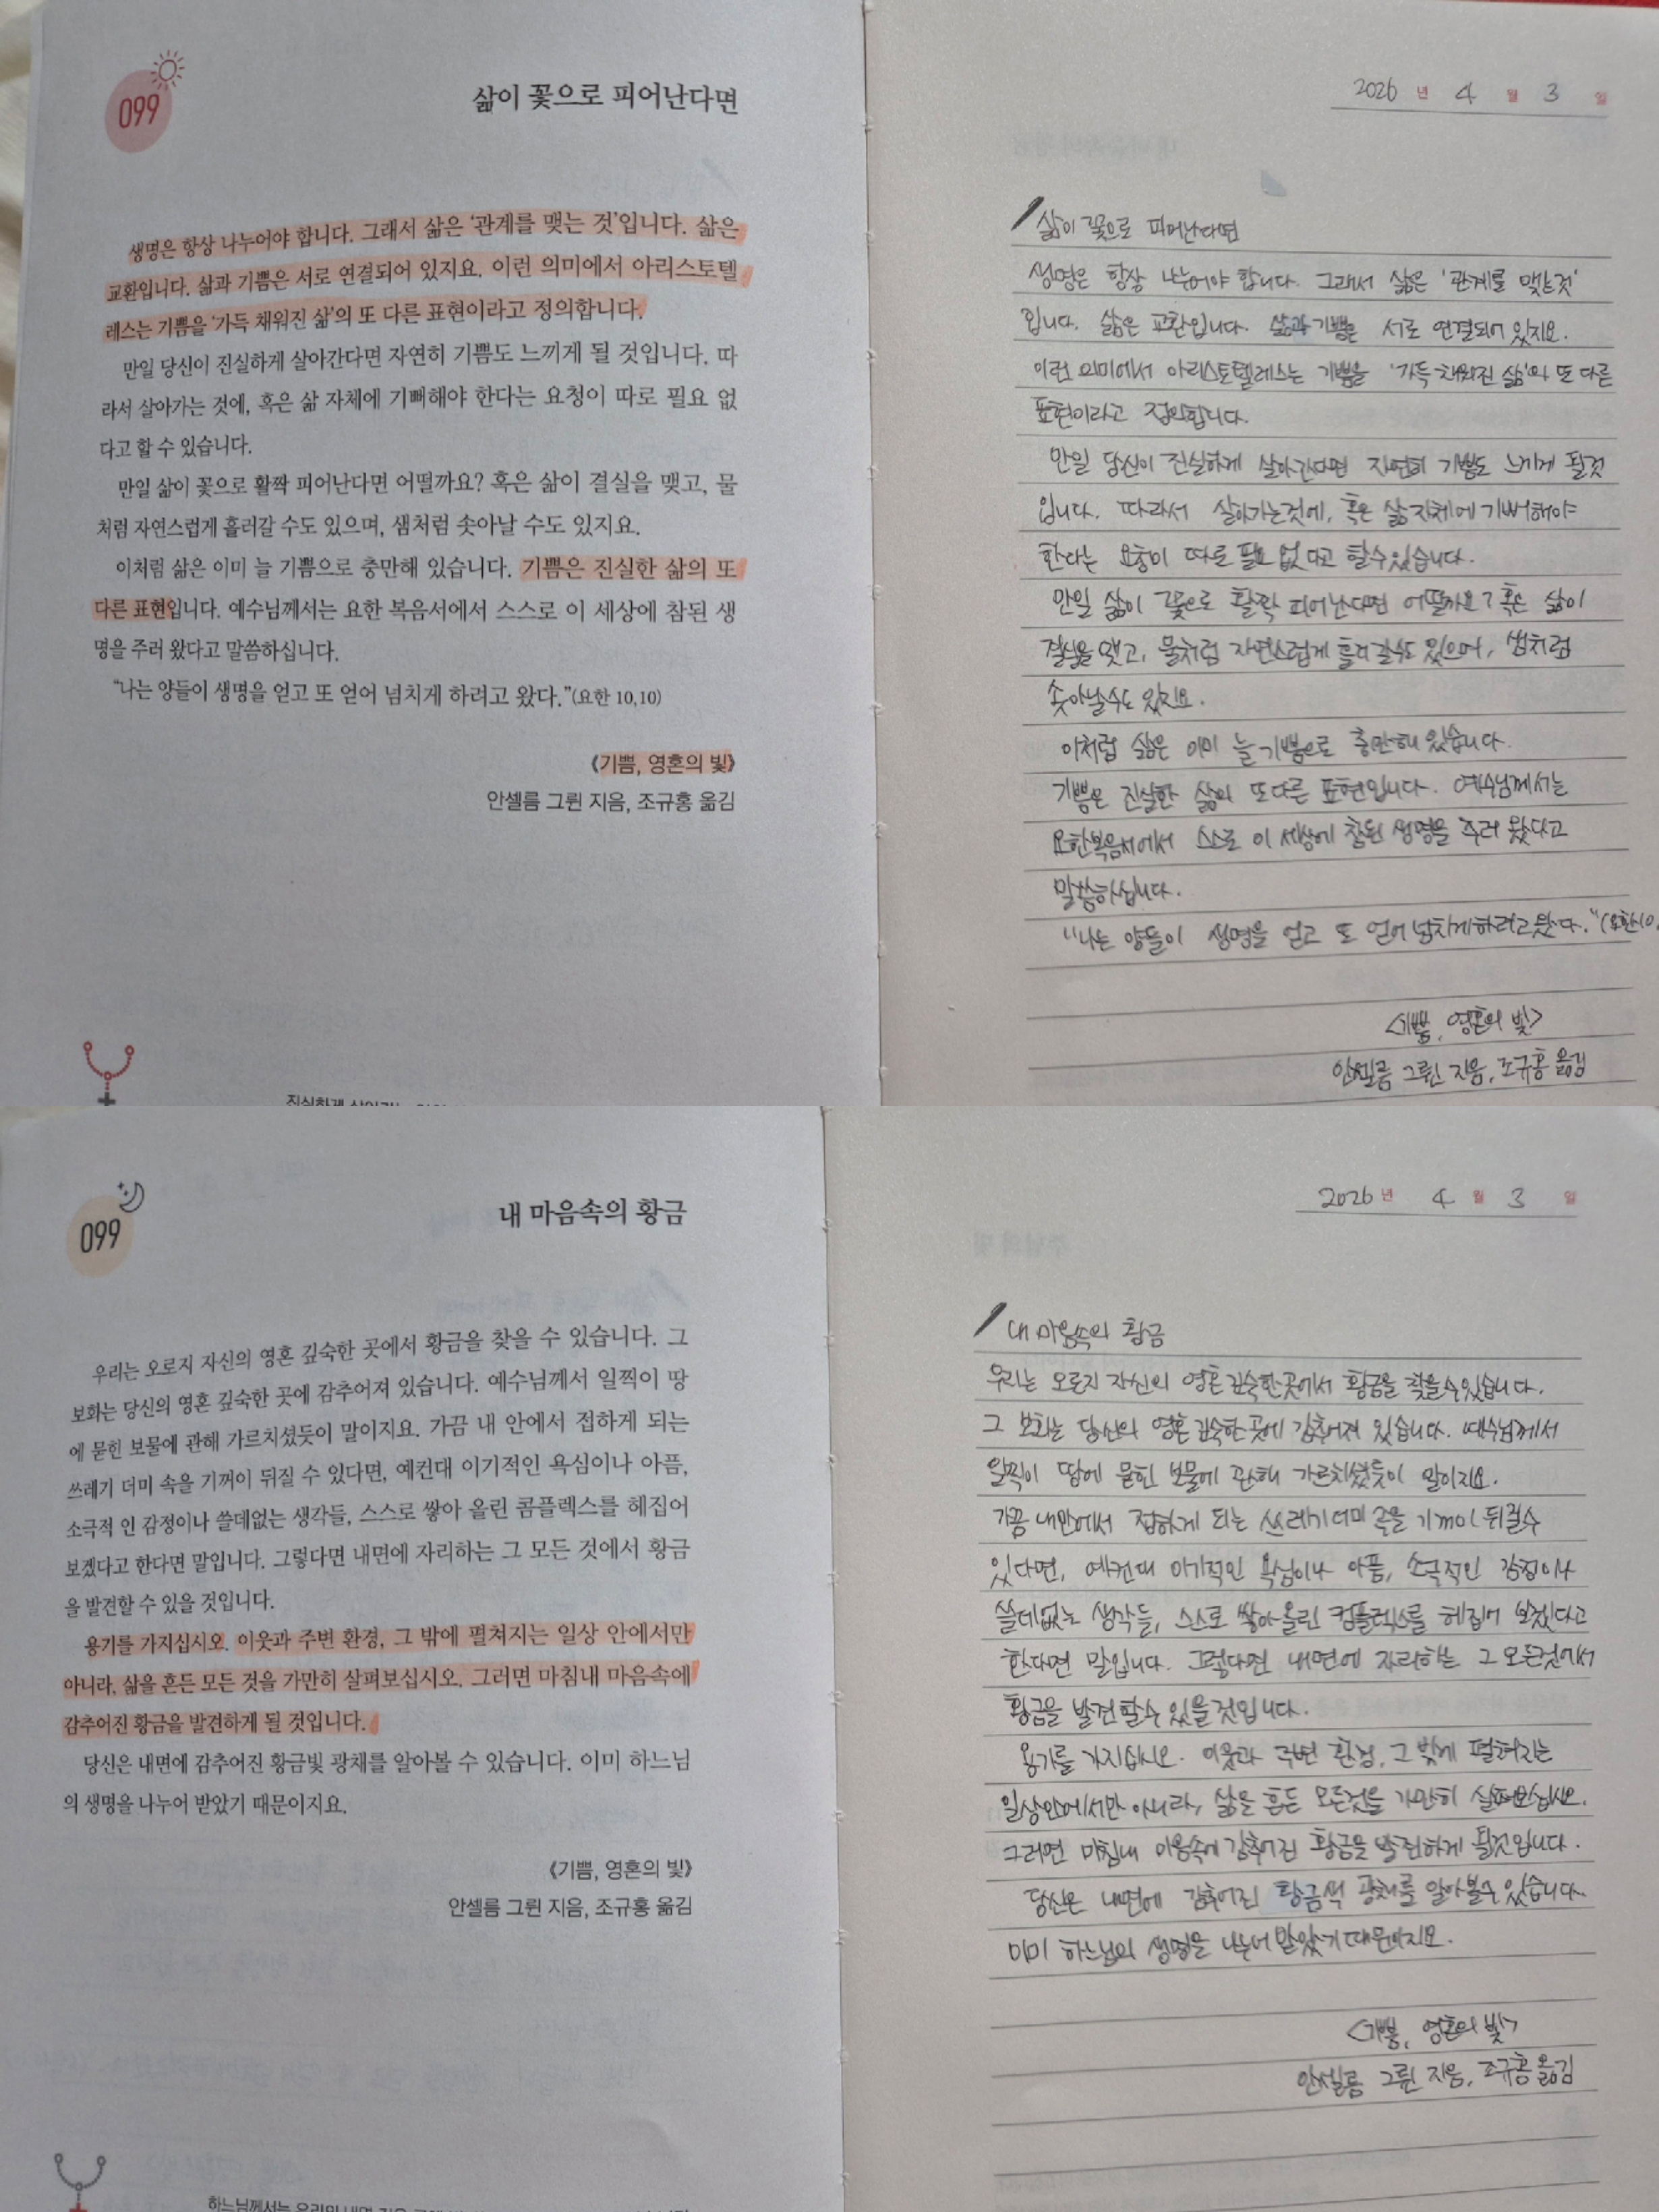 099
삶이 꽃으로 피어난다면
생명은 항상 나누어야 합니다. 그래서 삶은 '관계를 맺는 것'입니다. 삶은
교환입니다. 삶과 기쁨은 서로 연결되어 있지요. 이런 의미에서 아리스토텔
레스는 기쁨을 '가득 채워진 삶'의 또 다른 표현이라고 정의합니다.
만일 당신이 진실하게 살아간다면 자연히 기쁨도 느끼게 될 것입니다. 따
라서 살아가는 것에, 혹은 삶 자체에 기뻐해야 한다는 요청이 따로 필요 없
다고 할 수 있습니다.
만일 삶이 꽃으로 활짝 피어난다면 어떨까요? 혹은 삶이 결실을 맺고, 물
처럼 자연스럽게 흘러갈 수도 있으며, 샘처럼 솟아날 수도 있지요.
이처럼 삶은 이미 늘 기쁨으로 충만해 있습니다. 기쁨은 진실한 삶의 또
다른 표현입니다. 예수님께서는 요한 복음서에서 스스로 이 세상에 참된 생
명을 주러 왔다고 말씀하십니다.
“나는 양들이 생명을 얻고 또 얻어 넘치게 하려고 왔다.”(요한 10,10)
《기쁨, 영혼의 빛》
안셀름 그륀 지음, 조규홍 옮김
2026 년 4 월 3 일
삶이 꽃으로 피어난다면
생명은 항상 나누어야 합니다. 그래서 삶은 '관계를 맺는것'
입니다. 삶은 교환입니다. 삶과 기쁨은 서로 연결되어 있지요.
이런 의미에서 아리스토텔레스는 기쁨을 '가득 채워진 삶'의 또 다른
표현이라고 정의합니다.
만일 당신이 진실하게 살아간다면 자연히 기쁨도 느끼게 될것
입니다. 따라서 살아가는것에, 혹은 삶 자체에 기뻐해야
한다는 요청이 따로 필요 없다고 할수있습니다.
만일 삶이 꽃으로 활짝 피어난다면 어떨까요? 혹은 삶이
결실을 맺고, 물처럼 자연스럽게 흘러갈수도 있으며, 샘처럼
솟아날수도 있지요.
이처럼 삶은 이미 늘 기쁨으로 충만해 있습니다.
기쁨은 진실한 삶의 또다른 표현입니다. 예수님께서는
요한복음서에서 스스로 이 세상에 참된 생명을 주러 왔다고
말씀하십니다.
"나는 양들이 생명을 얻고 또 얻어 넘치게하려고왔다."(요한10,
<기쁨, 영혼의 빛>
안셀름 그륀 지음, 조규홍 옮김
099
내 마음속의 황금
우리는 오로지 자신의 영혼 깊숙한 곳에서 황금을 찾을 수 있습니다. 그
보화는 당신의 영혼 깊숙한 곳에 감추어져 있습니다. 예수님께서 일찍이 땅
에 묻힌 보물에 관해 가르치셨듯이 말이지요. 가끔 내 안에서 접하게 되는
쓰레기 더미 속을 기꺼이 뒤질 수 있다면, 예컨대 이기적인 욕심이나 아픔,
소극적 인 감정이나 쓸데없는 생각들, 스스로 쌓아 올린 콤플렉스를 헤집어
보겠다고 한다면 말입니다. 그렇다면 내면에 자리하는 그 모든 것에서 황금
을 발견할 수 있을 것입니다.
용기를 가지십시오. 이웃과 주변 환경, 그 밖에 펼쳐지는 일상 안에서만
아니라, 삶을 흔든 모든 것을 가만히 살펴보십시오. 그러면 마침내 마음속에
감추어진 황금을 발견하게 될 것입니다.
당신은 내면에 감추어진 황금빛 광채를 알아볼 수 있습니다. 이미 하느님
의 생명을 나누어 받았기 때문이지요.
《기쁨, 영혼의 빛》
안셀름 그륀 지음, 조규홍 옮김
2026 년 4 월 3 일
내 마음속의 황금
우리는 오로지 자신의 영혼 깊숙한곳에서 황금을 찾을수있습니다.
그 보화는 당신의 영혼 깊숙한 곳에 감추어져 있습니다. 예수님께서
일찍이 땅에 묻힌 보물에 관해 가르치셨듯이 말이지요.
가끔 내안에서 접하게 되는 쓰레기더미 속을 기꺼이 뒤질수
있다면, 예컨대 이기적인 욕심이나 아픔, 소극적인 감정이나
쓸데없는 생각들, 스스로 쌓아 올린 컴플렉스를 헤집어 보겠다고
한다면 말입니다. 그렇다면 내면에 자리하는 그 모든것에서
황금을 발견할수 있을것입니다.
용기를 가지십시오. 이웃과 주변 환경, 그 밖에 펼쳐지는
일상안에서만 아니라, 삶을 흔든 모든것을 가만히 살펴보십시오.
그러면 마침내 마음속에 감추어진 황금을 발견하게 될것입니다.
당신은 내면에 감추어진 황금색 광채를 알아볼수 있습니다.
이미 하느님의 생명을 나누어 받았기 때문이지요.
<기쁨, 영혼의 빛>
안셀름 그륀 지음, 조규홍 옮김